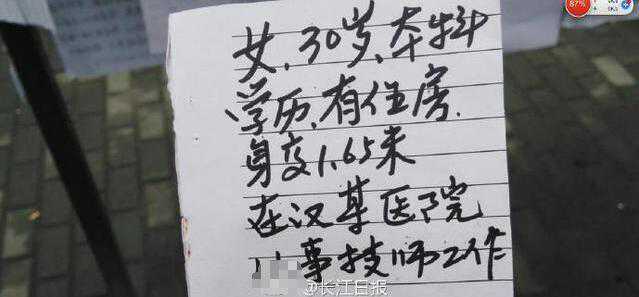 女、30岁、本科
学历、有住房.
身高1.65米
在汉某医院
事技师工作
@长江日报
87%